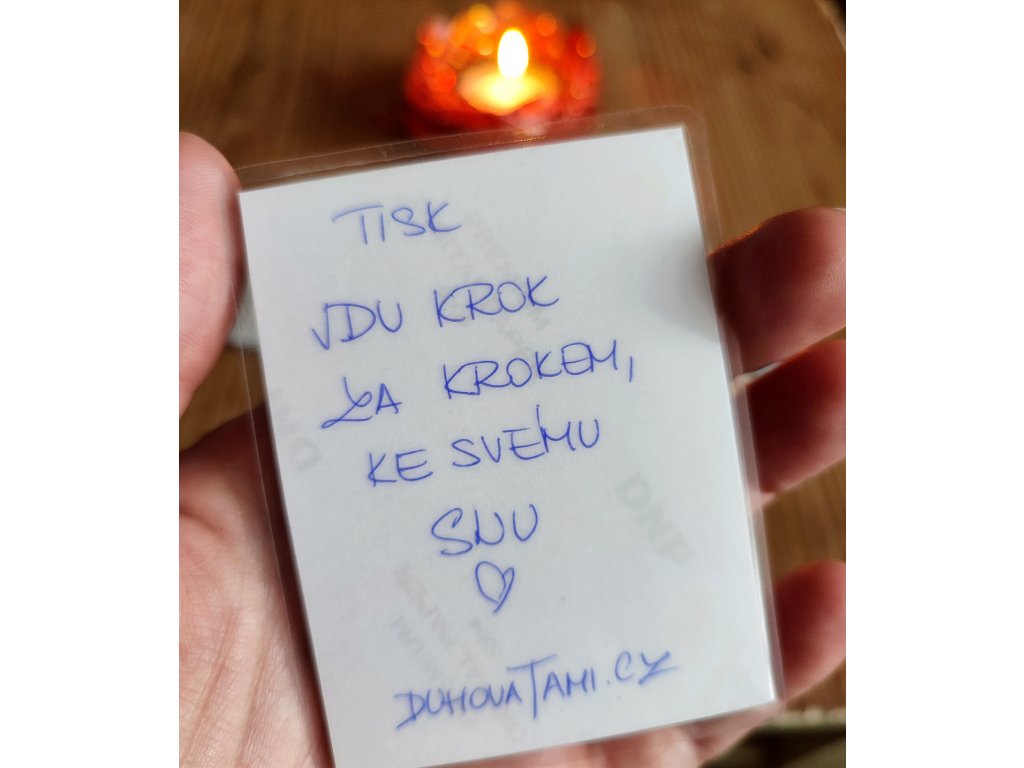 TISK
JDU KROK
ZA KROKEM,
KE SVÉMU
SNU
DUHOVATAMI.CZ
DNP